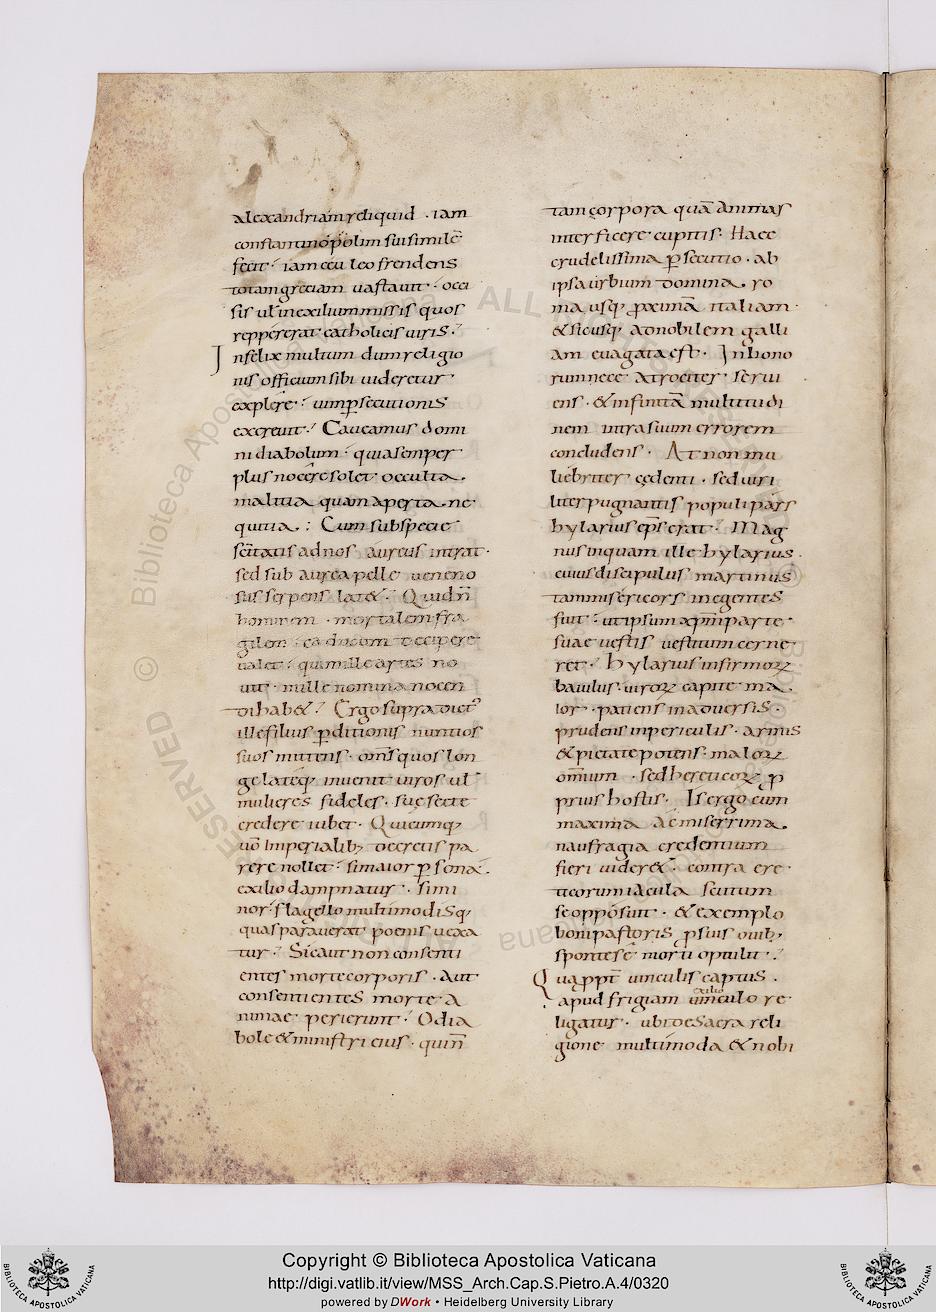 alexandriam reliquid . iam
constantinopolim sui similē
fecit . iam ceu leo frendens
totam greciam uastauit . occi
sis ul in exilium missis quos
reppererat catholicis uiris .
Infelix multum dum religio
nis officium sibi uideretur
explere . uim psecutionis
exercuit . Caueamus domi
ni diabolum . quia semper
plus nocere solet occulta
malitia quam aperta ne
quitia . Cum sub specie
scitatis ad nos aureus intrat .
sed sub aurea pelle ueneno
sus serpens lat& . Quidn̄
hominem . mortalem fra
gilem . ea docom decipere
ualet . qui mille artes no
uit . mille nomina nocen
di hab& . Ergo supra dict
ille filius pditionis nuntios
suos mittens . oms quos lon
ge lateq; inuenit uiros ul
mulieres fideles . suę secte
credere iubet . Quicumq;
uō Imperialib; decretis pa
rere nollet . si maior psona .
exilio dampnatur . si mi
nor . flagello multimodisq;
quas parauerat poenis uexa
tur . Sic aut non consenti
entes morte corporis . Aut
consentientes morte a
nimae perierunt . O dia
bole & ministri eius . quin̄
tam corpora quā animas
interficere cupitis . Haec
crudelissima psecutio . ab
ipsa urbium domina . ro
ma usq; proximā italiam
& sicusq; ad nobilem galli
am euagata est . In hono
rum nece atrociter seriu
ens . & infinitā multitudi
nem intra suum errorem
concludens . At non mu
liebriter cędenti . sed uiri
liter pugnantis populi pars
hylarius eps erat . Mag
nus inquam ille hylarius .
cuius discipulus martinus
tam misericors in egentes
fuit . ut ipsum xpm parte
suae uestis uestitum cerne
ret . hylarius infirmorꝝ
baiulus . uirorꝝ capite ma
ior . patiens in aduersis .
prudens in periculis . armis
& pietate potens . malorꝝ
omium . sed hereticorꝝ p
prius hostis . Is ergo cum
maxima ac miserrima
naufragia credentium
fieri uider& . contra ere
ticorum iacula scutum
se opposuit . & exemplo
boni pastoris p suis ouib;
sponte sē morti optulit .
Quappt uinculis captus .
exilio
apud frigiam uinculo re
ligatur . ubi de sacra reli
gione multimoda & nobi
Copyright © Biblioteca Apostolica Vaticana
http://digi.vatlib.it/view/MSS_Arch.Cap.S.Pietro.A.4/0320
powered by DWork • Heidelberg University Library